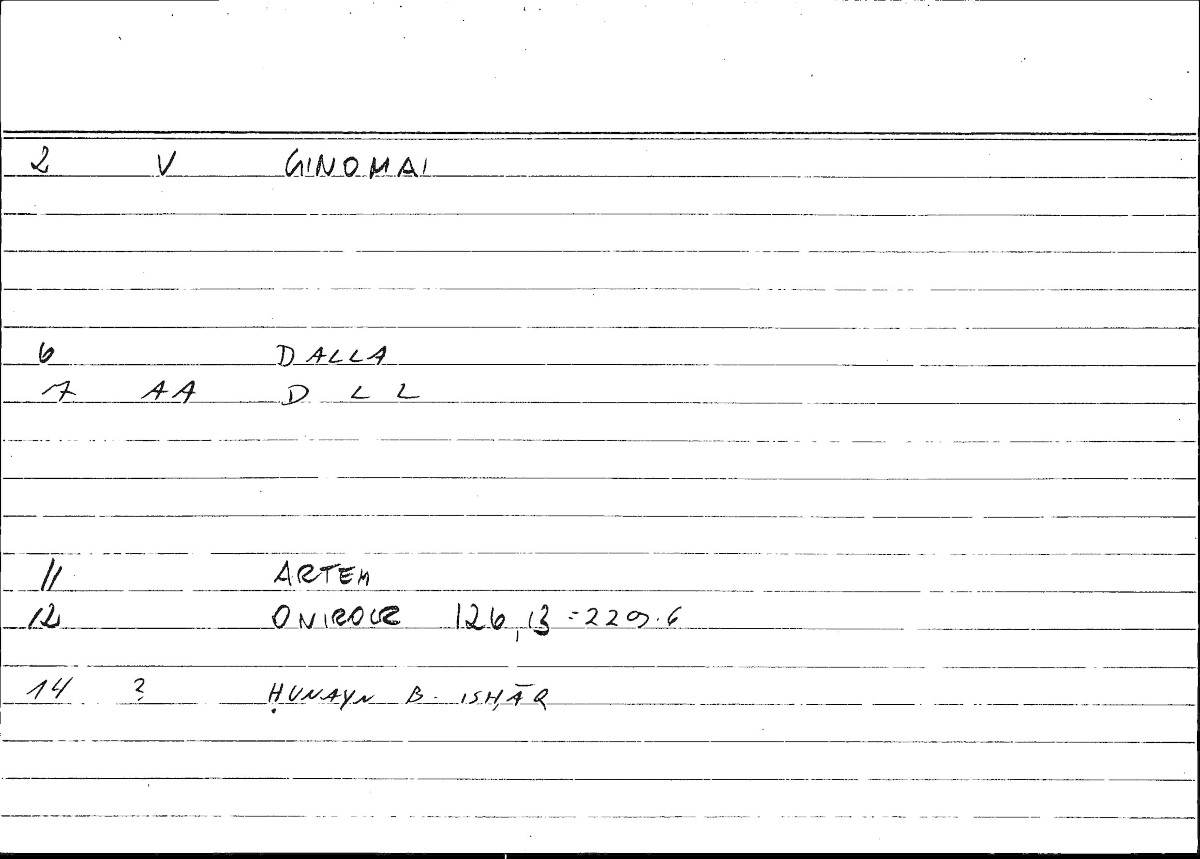 2 V GINOMAI
6 DALLA
7 AA D L L
11 ARTEM
12 ONIROCR 126,13 = 229.6
14 ? ḤUNAYN B. ISḤĀQ